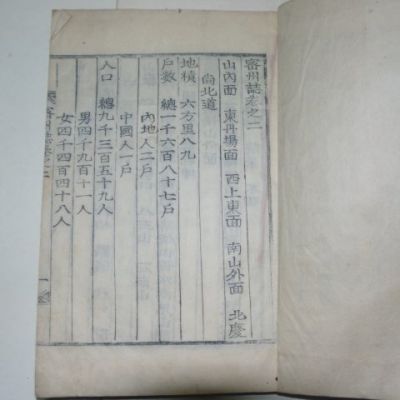 密州誌卷之二
山內面 東丹場面 西上東面 南山外面 北慶
尙北道
地積 六方里八九
戶數 總一千六百八十七戶
內地人二戶
中國人一戶
人口 總九千三百五十九人
男四千九百十一人
女四千四百四十八人